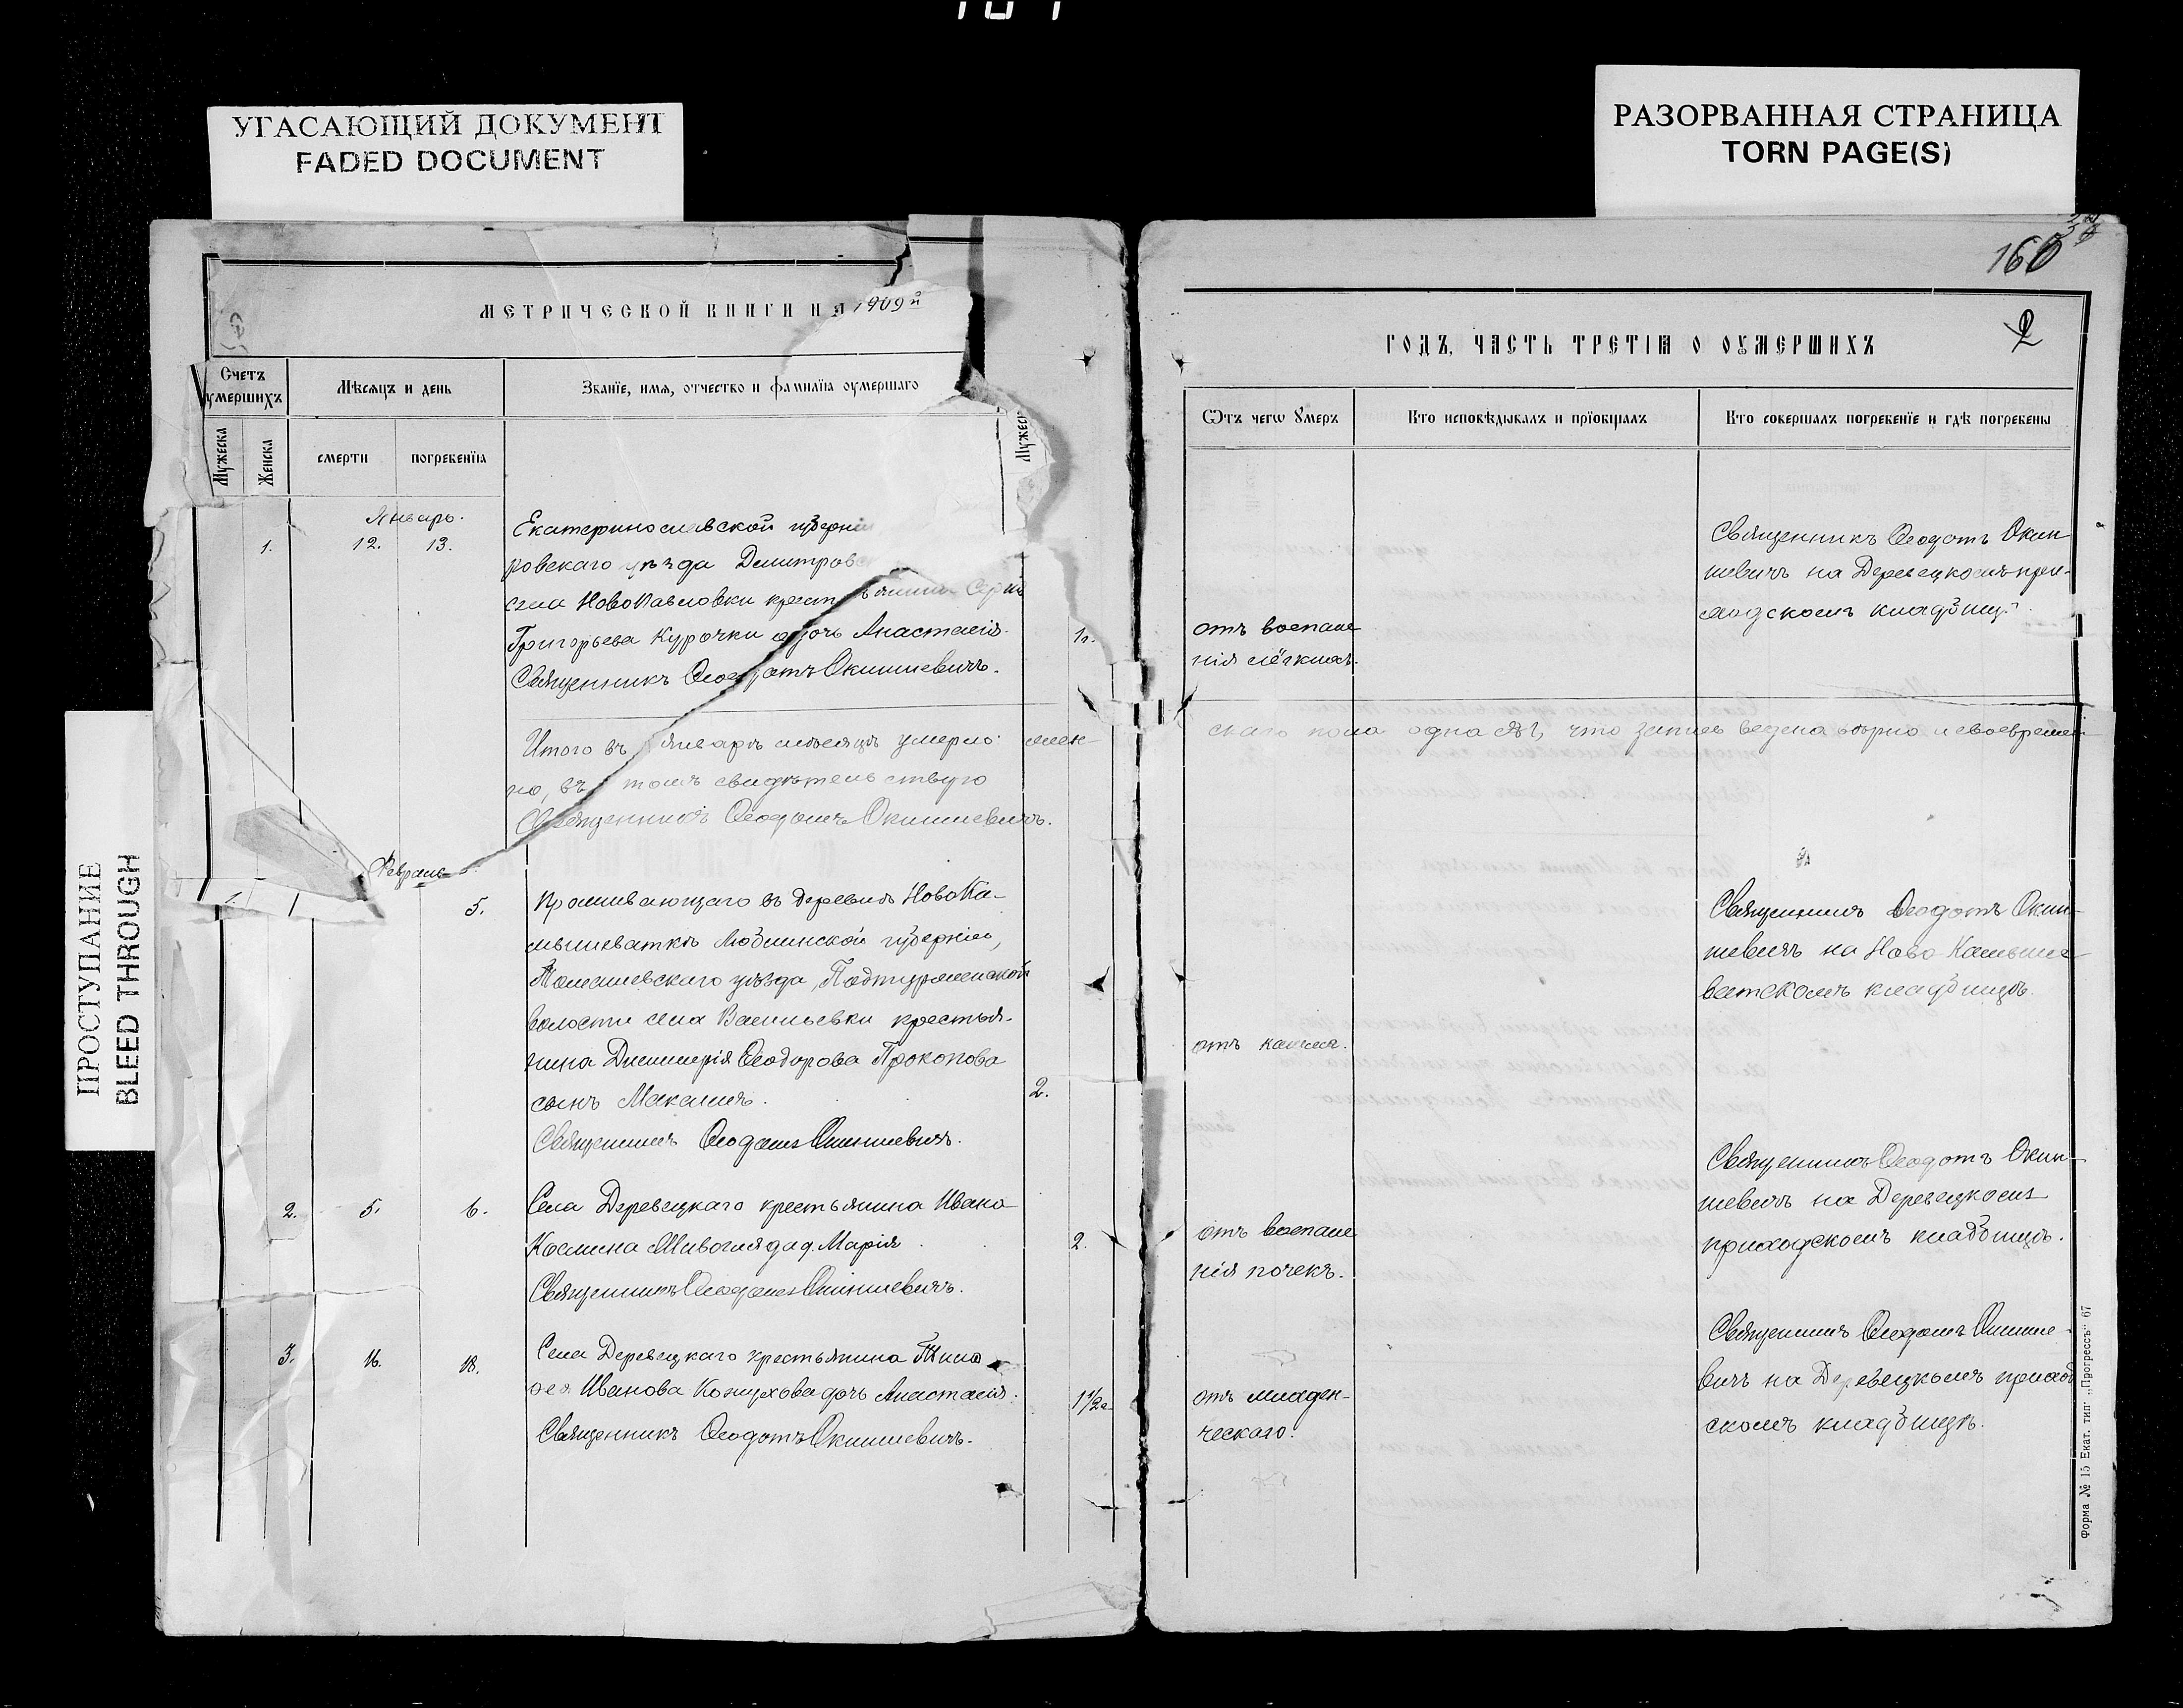 УГАСАЮЩИЙ ДОКУМЕНТ
FADED DOCUMENT
РАЗОРВАННАЯ СТРАНИЦА
TORN PAGE(S)
ПРОСТУПАНИЕ
BLEED THROUGH
МЕТРИЧЕСКОЙ КНИГИ НА 1909й
Счетъ умершихъ
Мѣсяцъ и день
Званїе, имя, отчество и фамилїа оумершаго
Мужеска
Женска
смерти
погребенїѧ
Мужес
Январь.
1. 12. 13.
Екатеринославской губерніи
ровскаго уѣзда Димитровс
села НовоПавловки крестьянина
Григорьева Курочки дочь Анастасія.
1г.
Священникъ Ѳеодотъ Окишевичъ.
Итого въ январѣ мѣсяцѣ умерло жен-
но, въ томъ свидѣтельствую
Священникъ Ѳеодотъ Окишевичъ.
Февраль
5.
Проживающаго въ деревнѣ НовоКа-
мышеваткѣ Люблинской губерніи,
Томашевскаго уѣзда,
волости села Васильевки крестья-
нина Димитрія Ѳеодорова Прокопова
сынъ Максимъ.
2.
Священникъ Ѳеодотъ Окишевичъ.
2. 5. 6.
Села Деревецкаго крестьянина Ивана
Космина д. Марія
2.
Священникъ Ѳеодотъ Окишевичъ.
3. 16. 18.
Села Деревецкаго крестьянина Тимо
ѳея Иванова Кожухова дочь Анастасія.
1 1/2г.
Священникъ Ѳеодотъ Окишевичъ.
160
2
ГОДЪ, ЧАСТЬ ТРЕТІѦ О ОУМЕРШИХЪ
Ѿтъ чегѡ ꙋмеръ
Кто исповѣдывалъ и прїобщалъ
Кто совершалъ погребенїе и гдѣ погребены
отъ воспале
нія лёгкихъ.
Священникъ Ѳеодотъ Окин
шевичъ на Деревецкомъ при-
ходскомъ кладбищѣ.
скаго пола одна что запись ведена вѣрно и своевремен
отъ кашля.
Священникъ Ѳеодотъ Окин-
шевичъ на Ново Камыше-
ватскомъ кладбищѣ.
отъ воспале
нія почекъ.
Священникъ Ѳеодотъ Окин-
шевичъ на Деревецкомъ
приходскомъ кладбищѣ.
отъ младен-
ческаго.
Священникъ Ѳеодотъ Окише-
вичъ на Деревецкомъ приход
скомъ кладбищѣ.
Форма № 15 Екат. тип. „Прогрессъ“ 67